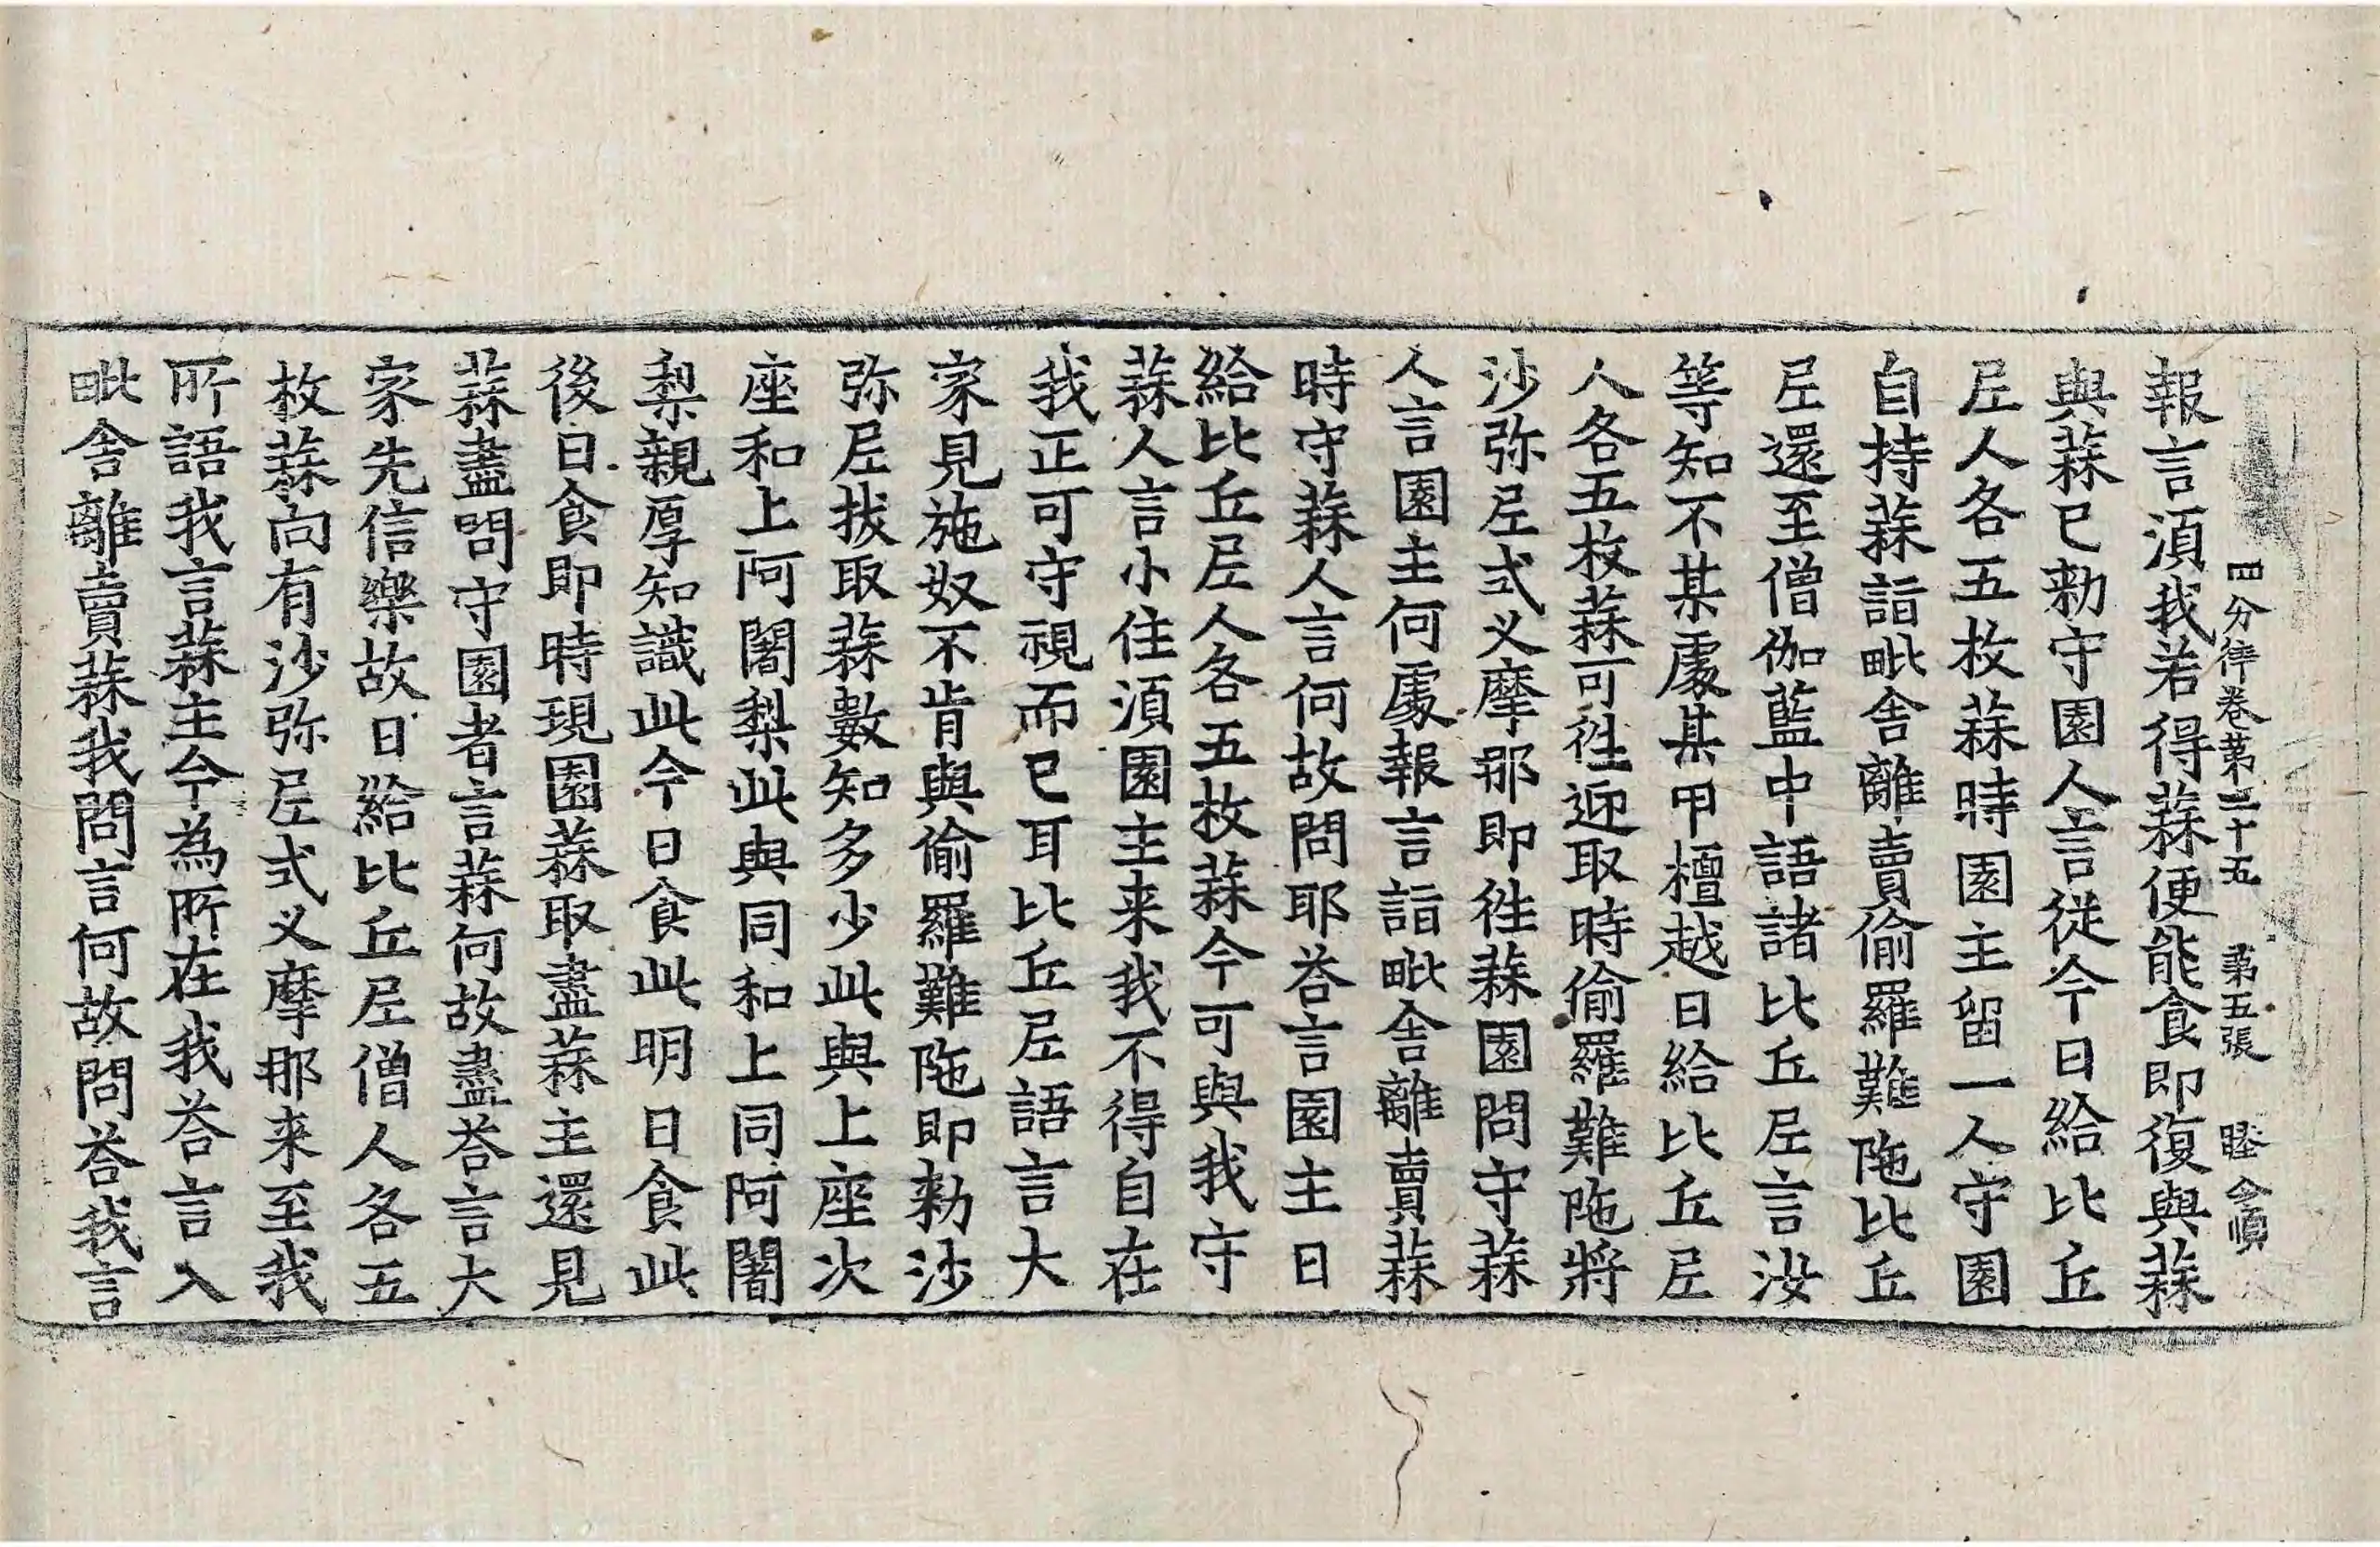 四分律卷第二十五 第五張 睦 令順
報言湏我若得蒜便能食即復與蒜
與蒜已勑守園人言從今日給比丘
尼人各五枚蒜時園主留一人守園
自持蒜詣毗舍離賣偷羅難陁比丘
尼還至僧伽藍中語諸比丘尼言汝
等知不某處某甲檀越日給比丘尼
人各五枚蒜可徃迎取時偷羅難陁將
沙弥尼式义摩那即徃蒜園問守蒜
人言園主何處報言詣毗舍離賣蒜
時守蒜人言何故問耶荅言園主日
給比丘尼人各五枚蒜今可與我守
蒜人言小住湏園主来我不得自在
我正可守視而已耳比丘尼語言大
家見施奴不肯與偷羅難陁即勑沙
弥尼拔取蒜數知多少此與上座次
座和上阿闍梨此與同和上同阿闍
梨親厚知識此今日食此明日食此
後日食即時現園蒜取盡蒜主還見
蒜盡問守園者言蒜何故盡荅言大
家先信樂故日給比丘尼僧人各五
枚蒜向有沙弥尼式义摩那来至我
所語我言蒜主今為所在我荅言入
毗舍離賣蒜我問言何故問荅我言